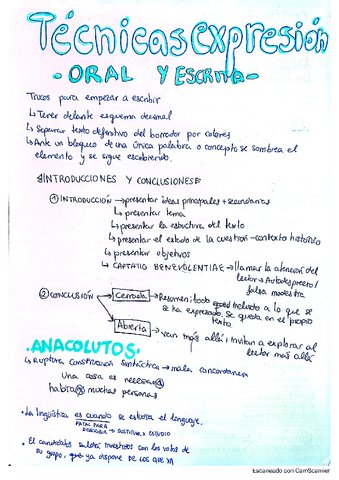 Técnicas expresión
- ORAL Y ESCRITA -
Trucos para empezar a escribir
↳ Tener delante esquema decimal
↳ Separar texto definitivo del borrador por colores
↳ Ante un bloqueo de una única palabra o concepto se sombrea el
elemento y se sigue escribiendo.
INTRODUCCIONES Y CONCLUSIONES
① INTRODUCCIÓN → presentar ideas principales + secundarias
↳ presentar tema
↳ presentar la estructura del texto
↳ presentar el estado de la cuestión - contexto histórico
↳ presentar objetivos
↳ CAPTATIO BENEVOLENTIAE → llamar la atención del
lector → Autodesprecio /
falsa modestia
② CONCLUSIÓN → Cerrada → Resumen: todo incluido a lo que se
se ha expresado. Se queda en el propio
texto
Abierta → van más allá; invitan a explorar al
lector más allá
ANACOLUTOS
↳ Ruptura construcción sintáctica → mala concordancia
Una casa es necesari
habí muchas personas
· La lingüística es cuando se estudia el lenguaje.
SUSTITUIR: ESTUDIO
· El candidato saldrá investido con los votos de
su grupo, que ya dispone DE LOS QUE YA
Escaneado con CamScanner